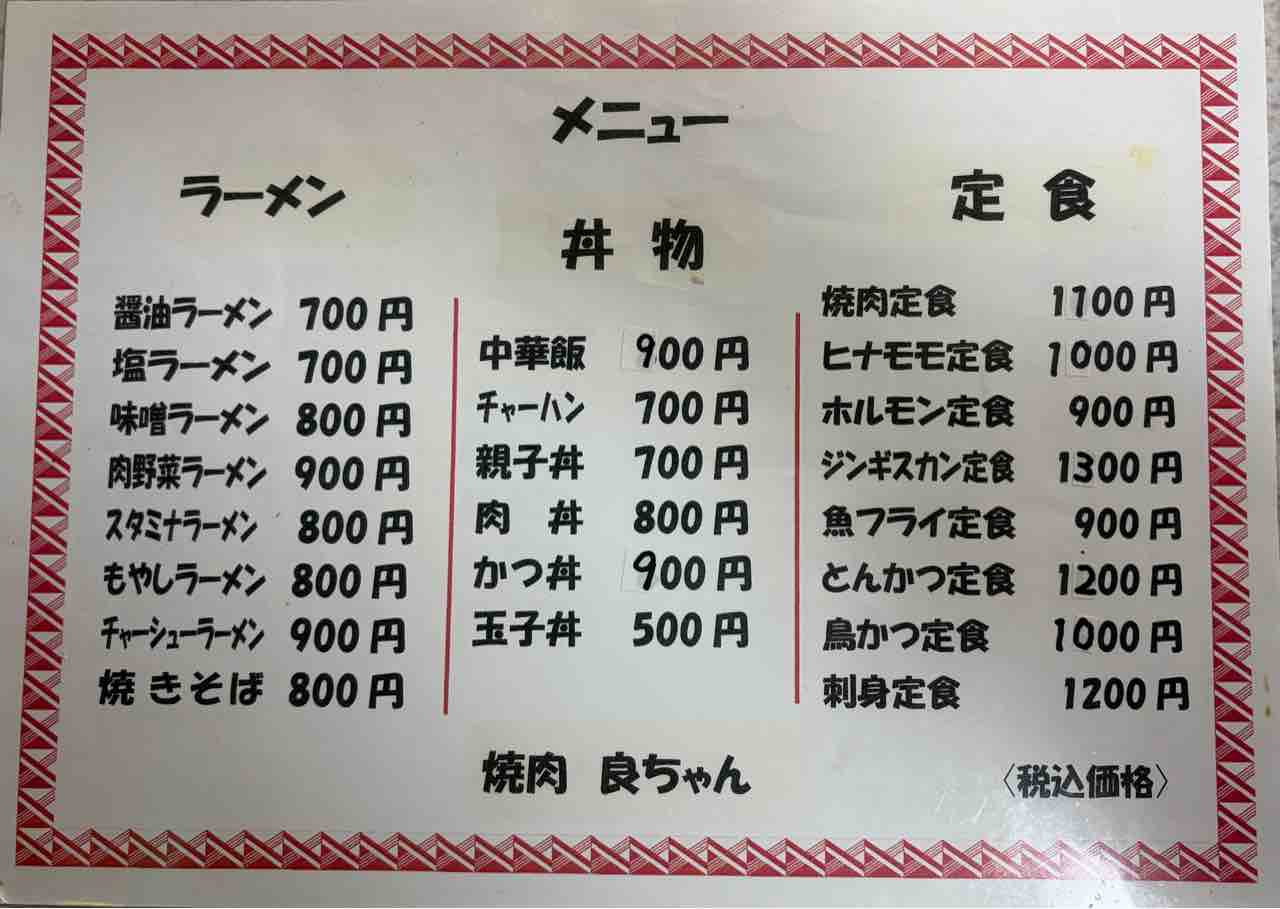 メニュー
ラーメン
醤油ラーメン 700円
塩ラーメン 700円
味噌ラーメン 800円
肉野菜ラーメン 900円
スタミナラーメン 800円
もやしラーメン 800円
チャーシューラーメン 900円
焼きそば 800円
丼物
中華飯 900円
チャーハン 700円
親子丼 700円
肉丼 800円
かつ丼 900円
玉子丼 500円
定食
焼肉定食 1100円
ヒナモモ定食 1000円
ホルモン定食 900円
ジンギスカン定食 1300円
魚フライ定食 900円
とんかつ定食 1200円
鳥かつ定食 1000円
刺身定食 1200円
焼肉 良ちゃん
〈税込価格〉